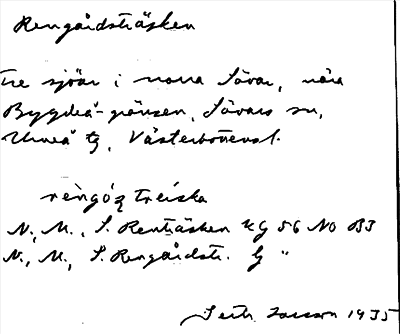 Rengårdsträsken
tre sjöar i norra Sävar, nära
Bygdeå-gränsen, Sävars sn,
Umeå tg, Västerbottensl.
rèngóʒ treíska
N., M., S. Renträsken kg 56 NO BJ
N., M., S. Rengårdstr. tg "
Larsson 1935